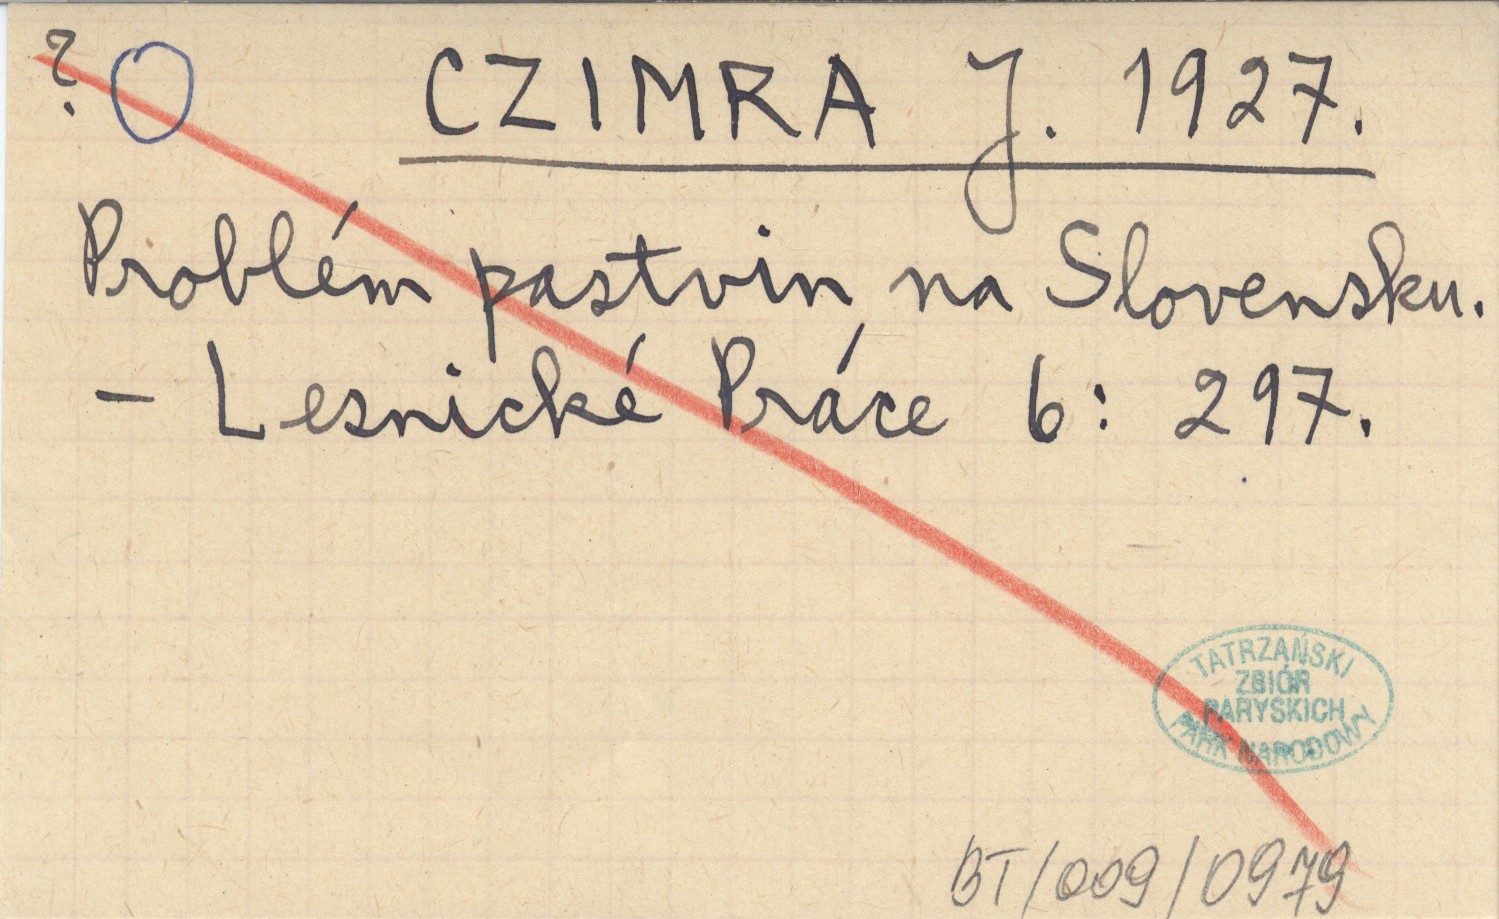 ?
CZIMRA J. 1927.
Problém pastvin na Slovensku.
- Lesnické Práce 6: 297.
TATRZAŃSKI
ZBIÓR
PARYSKICH
PARK NARODOWY
BT/009/0979